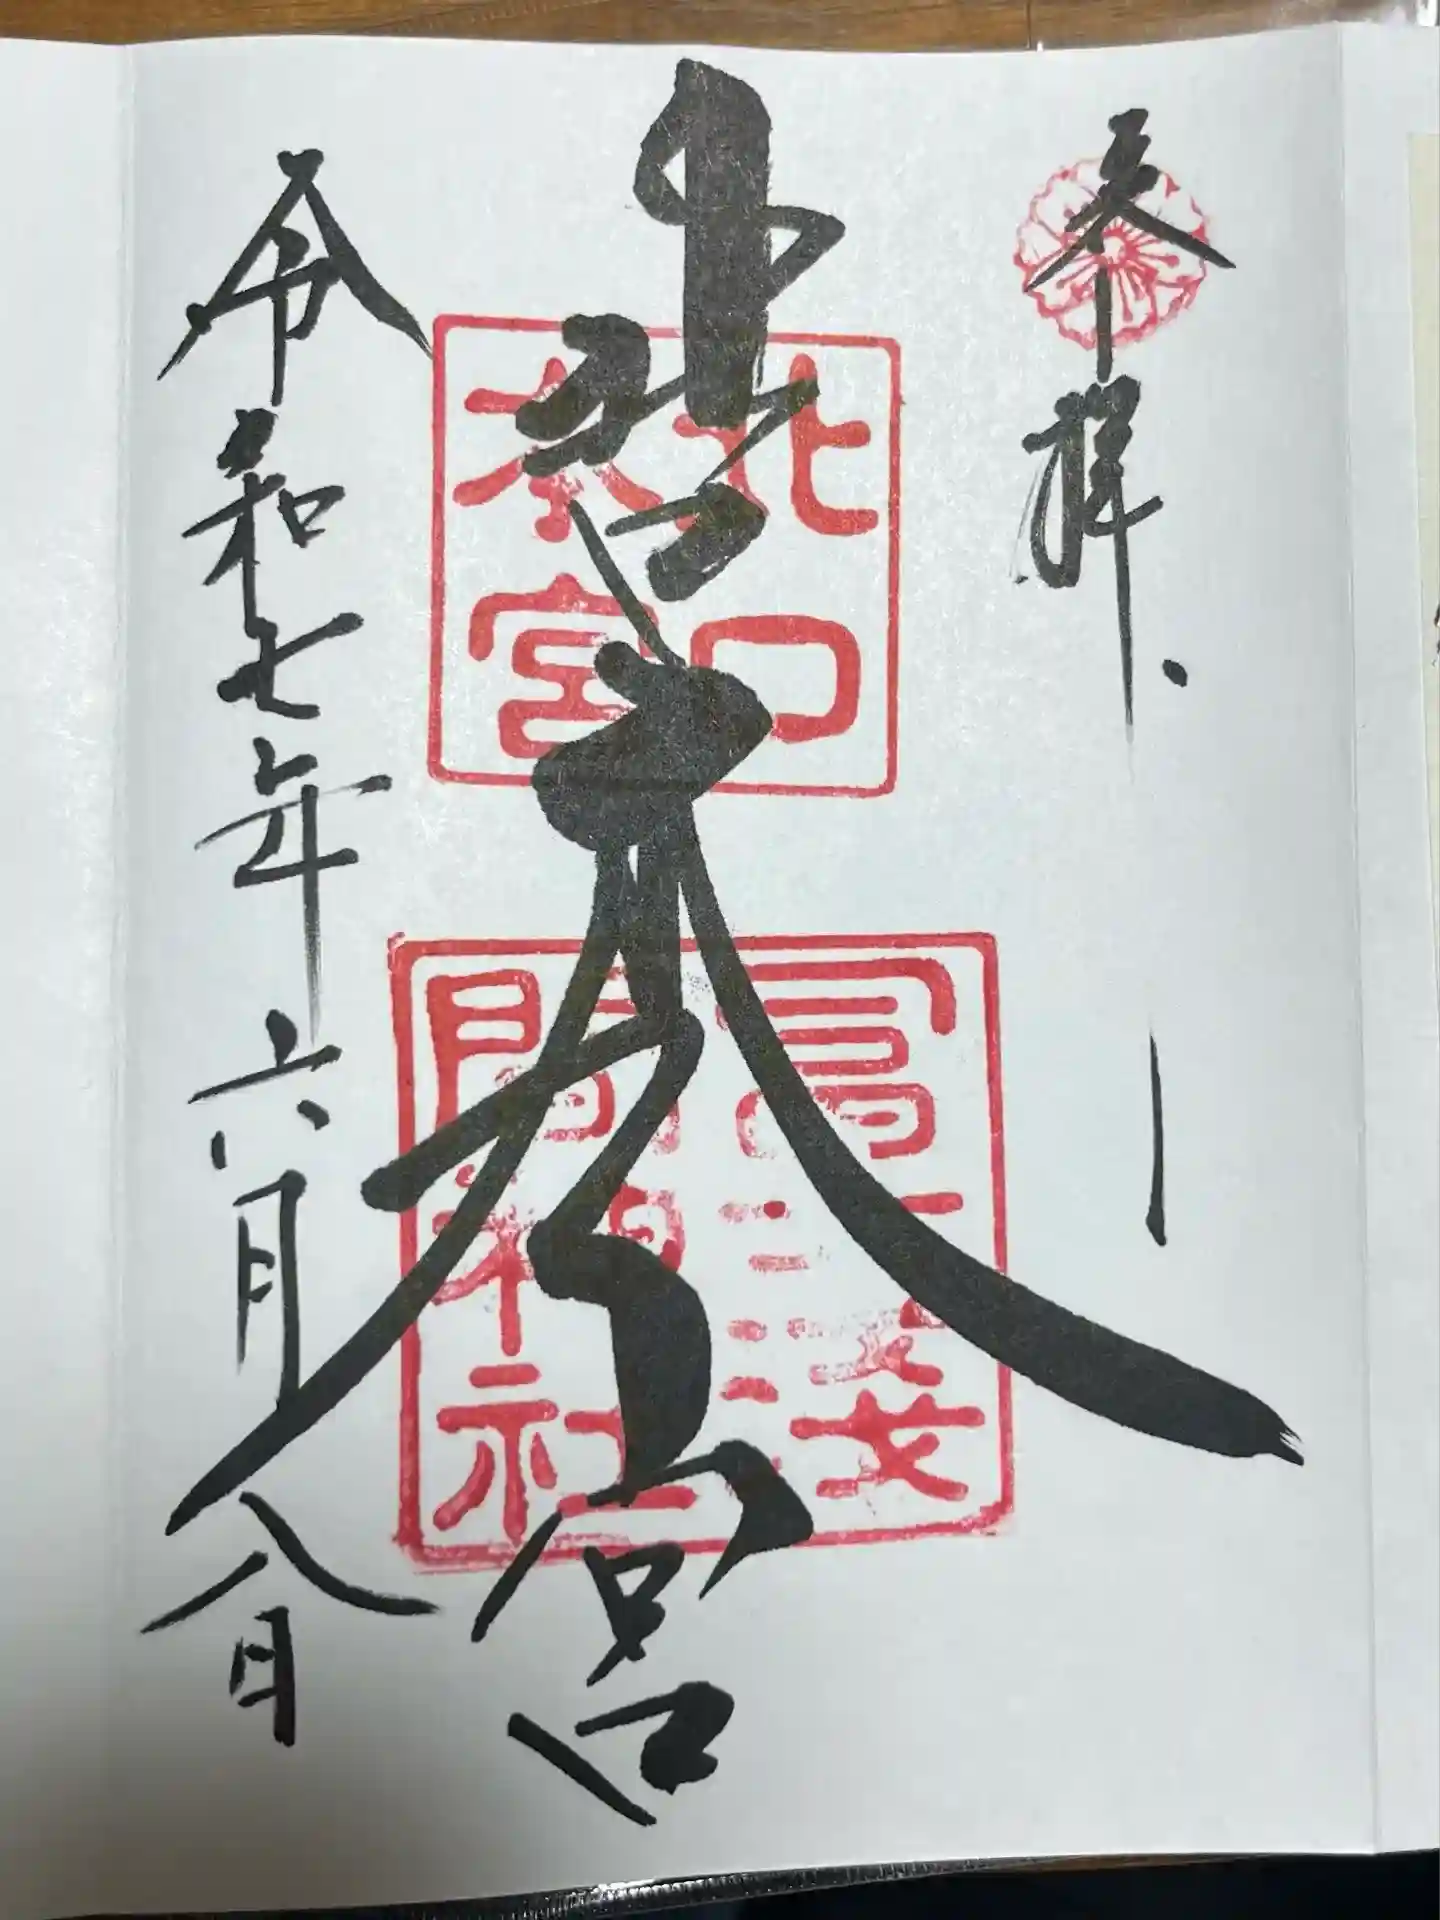 奉拝
北口本宮
北口
本宮
冨淺
間神社
令和七年六月八日